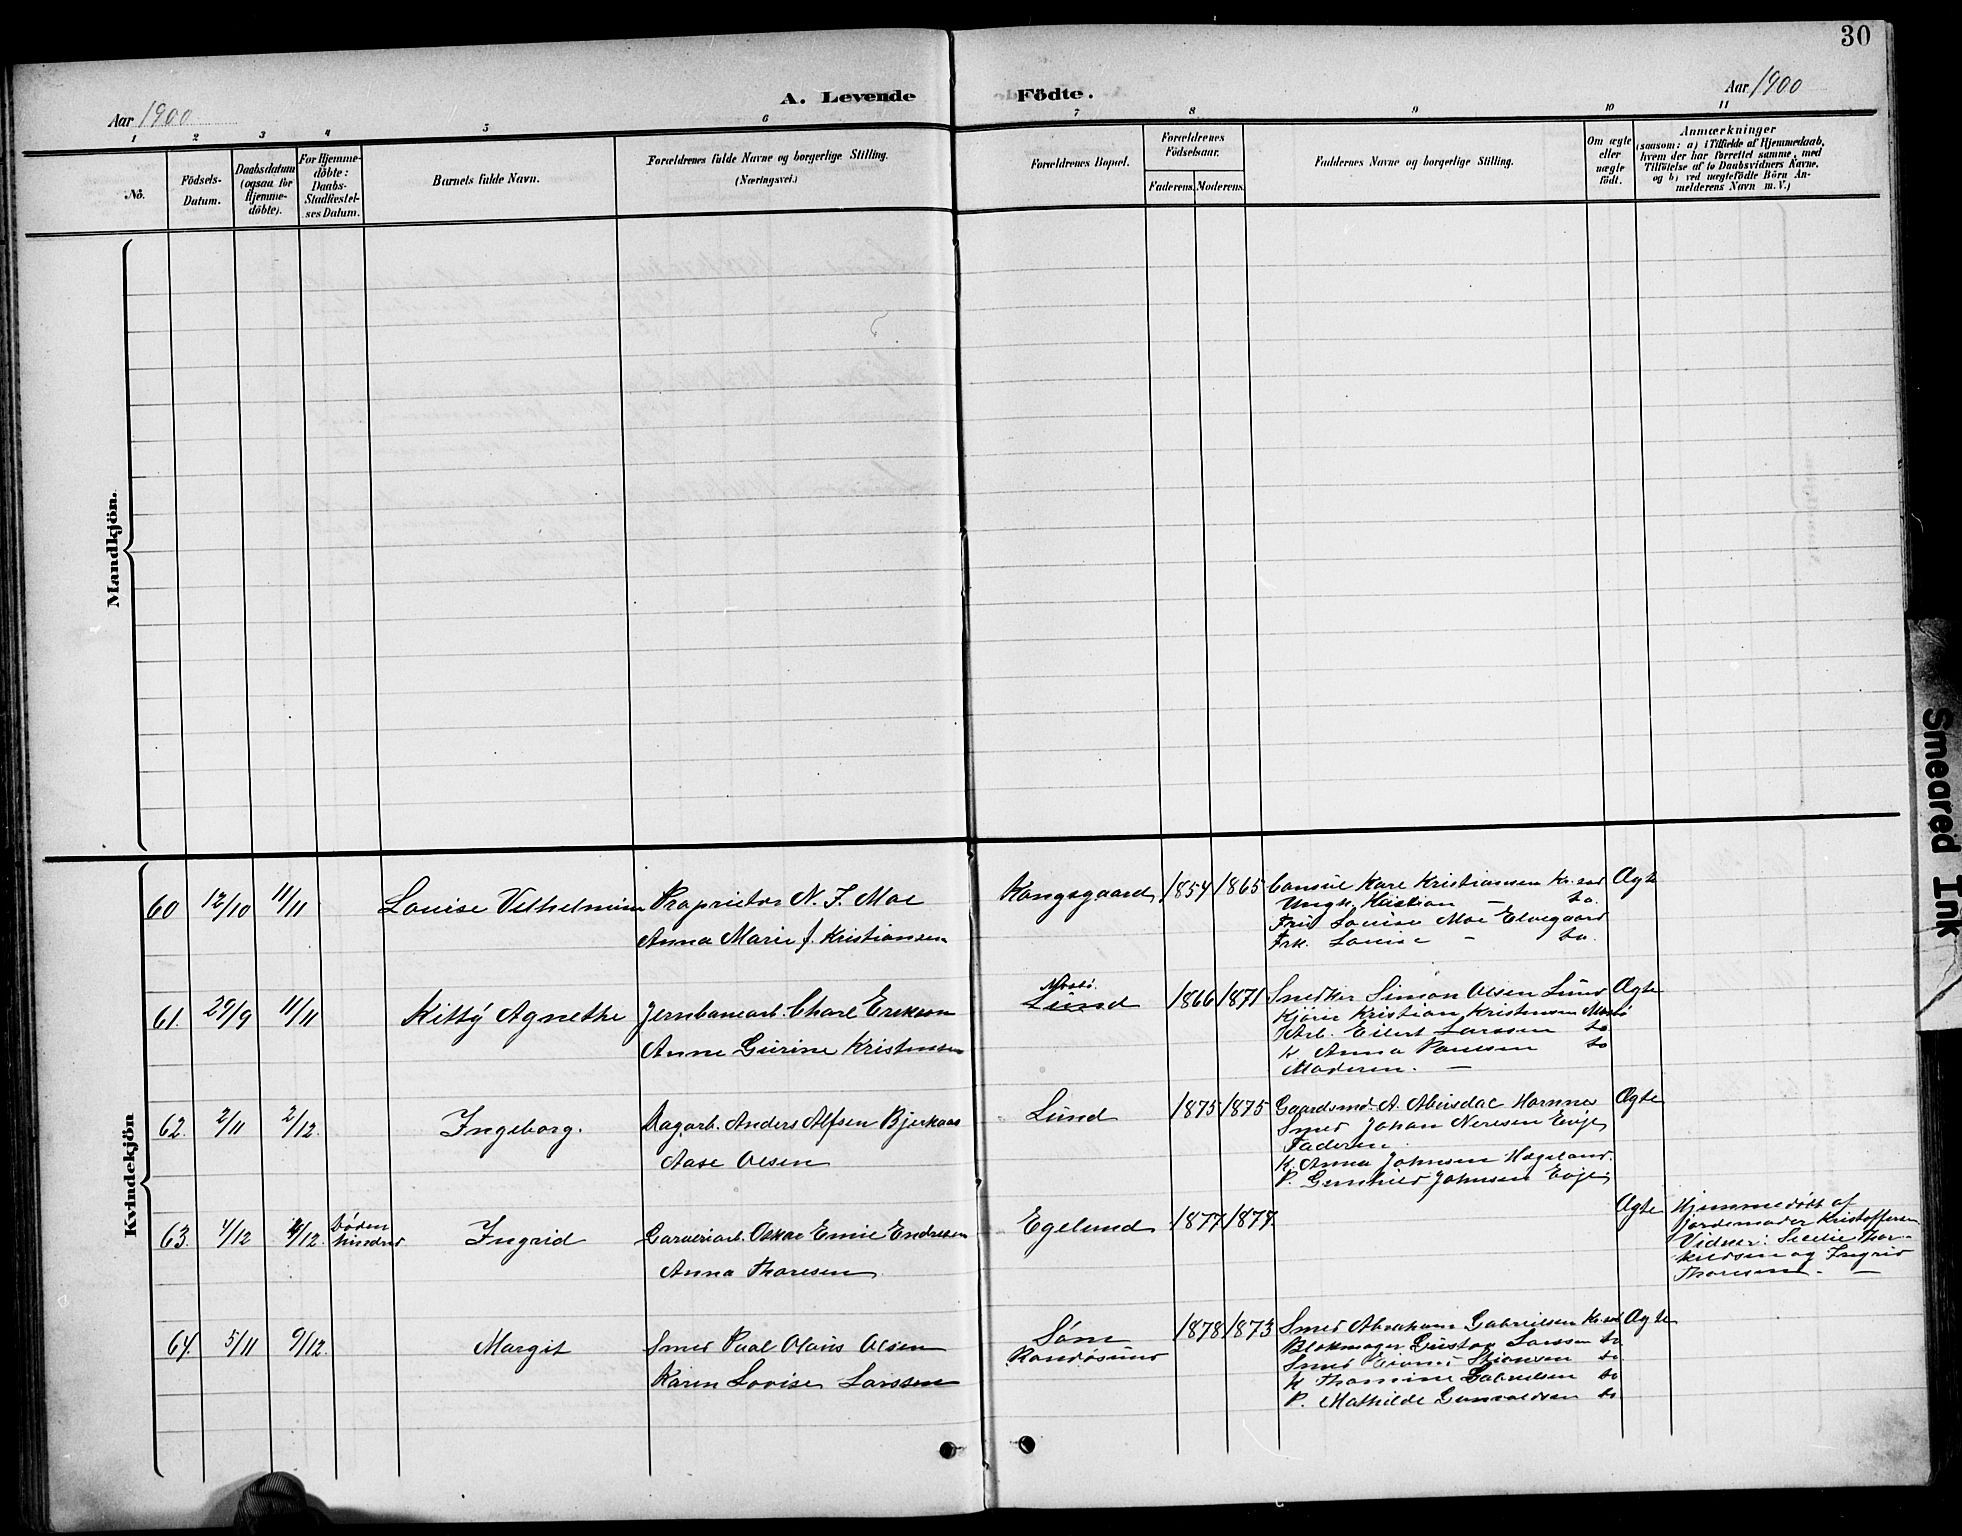 30
A. Levende Födte.
Aar 1900
Aar 1900
1 2 3 4 5 6 7 8 9 10 11
Nö.
Födsels-Datum.
Daabsdatum (ogsaa for Hjemme-döbte).
For Hjemme-döbte: Daabs-Stadfæstel-ses Datum.
Barnets fulde Navn.
Forældrenes fulde Navne og borgerlige Stilling. (Næringsvei.)
Forældrenes Bopæl.
Forældrenes Födselsaar.
Faderens. Moderens.
Faddernes Navne og borgerlige Stilling.
Om ægte eller uægte födt.
Anmærkninger
(saasom: a) i Tilfælde af Hjemmedaab,
hvem der har forrettet samme, med
Tilföielse af to Daabsvidners Navne,
og b) ved uægtefödte Börn An-
melderens Navn m. V.)
Mandkjön.
Kvindekjön
60 12/10 11/11 Louise Vilhelmine Proprietær N. J. Moe Kongsgaard 1854 1865 Consul Karl Kristiansen Kr.sand Ægte
Anna Marie f. Kristiansen
Ungk. Kristian — do.
Fru Louise Moe Elvegaard
Frk. Louise — do.
61. 29/9 11/11 Kitty Agnethe Jernbanearb. Charl Erikson Lund 1866 1871 Snedker Simon Olsen Lund Ægte
Anne Gurine Kristensen
Kristian Kristensen
Arb. Eilert Larssen do
K. Anna Paulsen do
Moderen. —
62. 2/11 2/12. Ingeborg. Dagarb. Anders Alfsen Bjerkaas Lund 1875 1875 Gaardsmd. A. Hornnes Ægte
Aase Olsen
Smed Johan Neresen Evje
Faderen
K. Anna Johnsen Hægeland.
P. Gunhild Johnsen Evje
63. 4/12 4/12. Döden hindret Ingrid Garveriarb. Oskar Emil Endresen Egelund 1877 1874 Ægte Hjemmedöbt af
Anna Thoresen
Jordemoder Kristoffersen
Vidner: Sicilie Thor-
kildsen og Ingrid
Thoresen. —
64. 5/11 9/12. Margit Smed Paal Olaus Olsen Söm Randösund 1878 1873 Smed Abraham Gabrielsen Kr.sand Ægte
Karen Lovise Larssen
Blokmager Gustav Larssen do
Smed Stiansen do.
K. Thomine Gabrielsen do
P. Mathilde Gunvaldsen do.
Smeared Ink